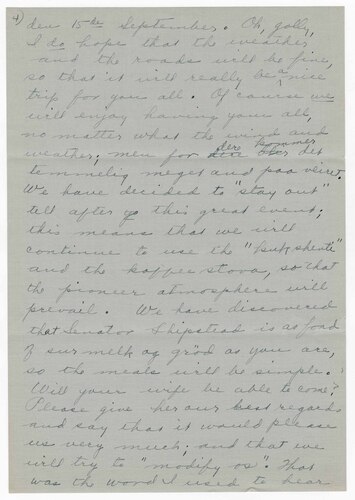 4)
den 15de September. Oh, golly,
I do hope that the weather
and the roads will be fine,
so that it will really be a nice
trip for you all. Of course we
will enjoy having you all,
no matter what the wind and
weather; men for dere kommer det
temmelig meget and paa veiret.
We have decided to "stay out"
till after this great event;
this means that we will
continue to use the
and the kaffee stova, so that
the pioneer atmosphere will
prevail. We have discovered
that Senator Shipstead is as fond
of surmelk og gröd as you are,
so the meals will be simple.
Will your wife be able to come?
Please give her our best regards
and say that it would please
us very much; and that we
will try to "modify os". That
was the word I used to hear